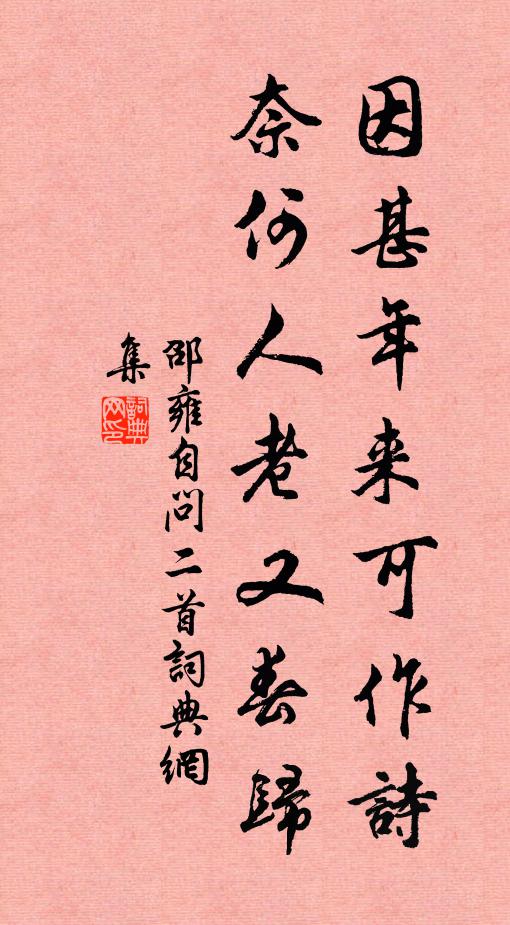 因甚年来可作詩
奈何人老又春歸
邵雍自問二首詞典網
集
詞典網印